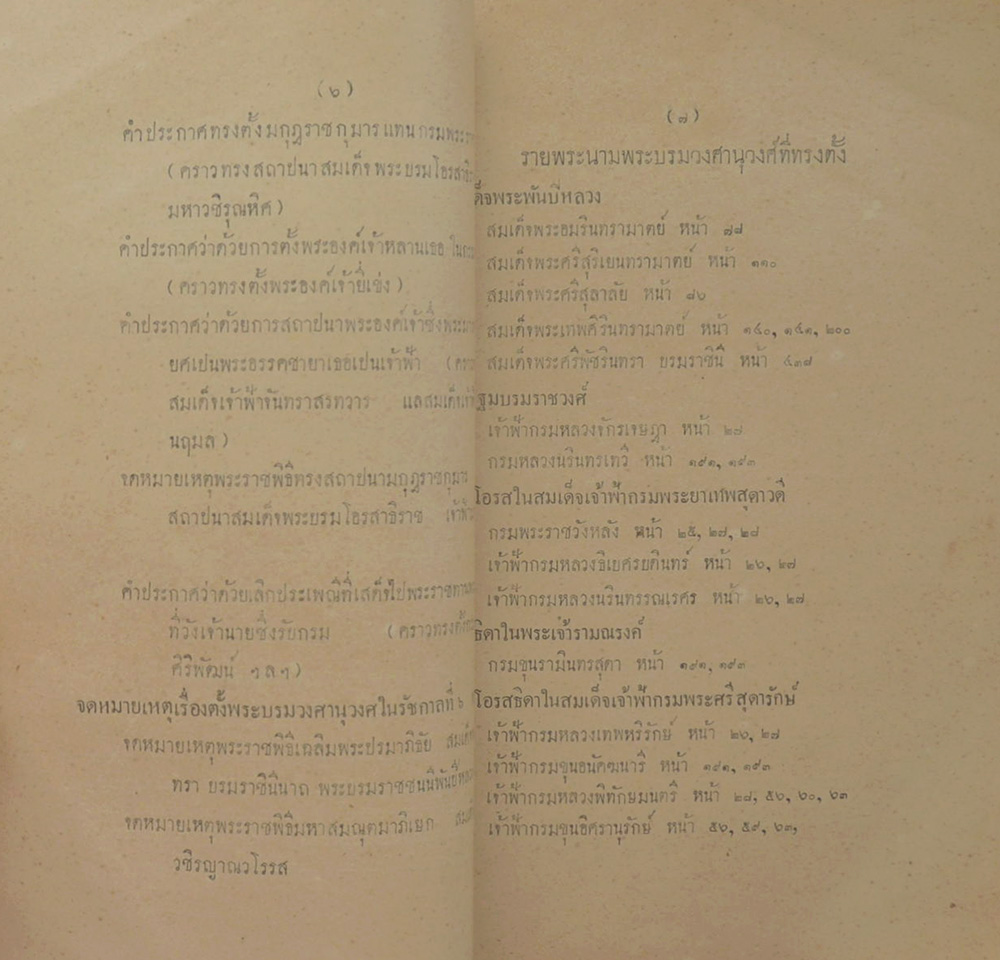 (๖)
คำประกาศทรงตั้งมกุฎราชกุมารแทนกรมพระรา
(คราวทรงสถาปนาสมเด็จพระบรมโอรสาธิ
มหาวชิรุณหิศ)
คำประกาศว่าด้วยการตั้งพระองค์เจ้าหลานเธอ ใน
(คราวทรงตั้งพระองค์เจ้ายี่เข่ง)
คำประกาศว่าด้วยการสถาปนาพระองค์เจ้าซึ่งพระ
ยศเปนพระอรรคชายาเธอเปนเจ้าฟ้า (ครา
สมเด็จเจ้าฟ้าจันทราสรทวาร แลสมเด็จเจ้า
นฤมล)
จดหมายเหตุพระราชพิธีทรงสถาปนามกุฎราชกุมาร
สถาปนาสมเด็จพระบรมโอรสาธิราช เจ้าฟ้า
คำประกาศว่าด้วยเลิกประเพณีที่เสด็จไปพระราชทาน
ที่วังเจ้านายซึ่งรับกรม (คราวทรงตั้ง
ศิริพัฒน์ ฯลฯ)
จดหมายเหตุเรื่องตั้งพระบรมวงศานุวงศในรัชกาลที่ ๖
จดหมายเหตุพระราชพิธีเฉลิมพระปรมาภิธัย สมเด็จ
ทรา บรมราชินีนาถ พระบรมราชชนนีพันปีหลวง
จดหมายเหตุพระราชพิธีมหาสมณุตมาภิเษก สมเด็
วชิรญาณวโรรส
(๗)
รายพระนามพระบรมวงศานุวงศ์ที่ทรงตั้ง
ด็จพระพันปีหลวง
สมเด็จพระอมรินทรามาตย์ หน้า ๗๗
สมเด็จพระศรีสุริเยนทรามาตย์ หน้า ๑๑๐
สมเด็จพระศรีสุลาลัย หน้า ๗๖
สมเด็จพระเทพศิรินทรามาตย์ หน้า ๑๔๐, ๑๔๑, ๒๐๐
สมเด็จพระศรีพัชรินทรา บรมราชินี หน้า ๔๓๗
ฐมบรมราชวงศ์
เจ้าฟ้ากรมหลวงจักรเจษฎา หน้า ๒๗
กรมหลวงนรินทรเทวี หน้า ๑๙๑, ๑๙๓
โอรสในสมเด็จเจ้าฟ้ากรมพระยาเทพสุดาวดี
กรมพระราชวังหลัง หน้า ๒๕, ๒๗, ๒๘
เจ้าฟ้ากรมหลวงธิเบศรบดินทร์ หน้า ๒๖, ๒๗
เจ้าฟ้ากรมหลวงนรินทรรณเรศร หน้า ๒๖, ๒๗
ธิดาในพระเจ้ารามณรงค์
กรมขุนรามินทรสุดา หน้า ๑๙๑, ๑๙๓
โอรสธิดาในสมเด็จเจ้าฟ้ากรมพระศรีสุดารักษ์
เจ้าฟ้ากรมหลวงเทพหริรักษ์ หน้า ๒๖, ๒๗
เจ้าฟ้ากรมขุนอนัคฆนารี หน้า ๑๙๑, ๑๙๓
เจ้าฟ้ากรมหลวงพิทักษมนตรี หน้า ๒๘, ๕๖, ๖๐, ๖๓
เจ้าฟ้ากรมขุนอิศรานุรักษ์ หน้า ๕๖, ๕๙, ๖๓,